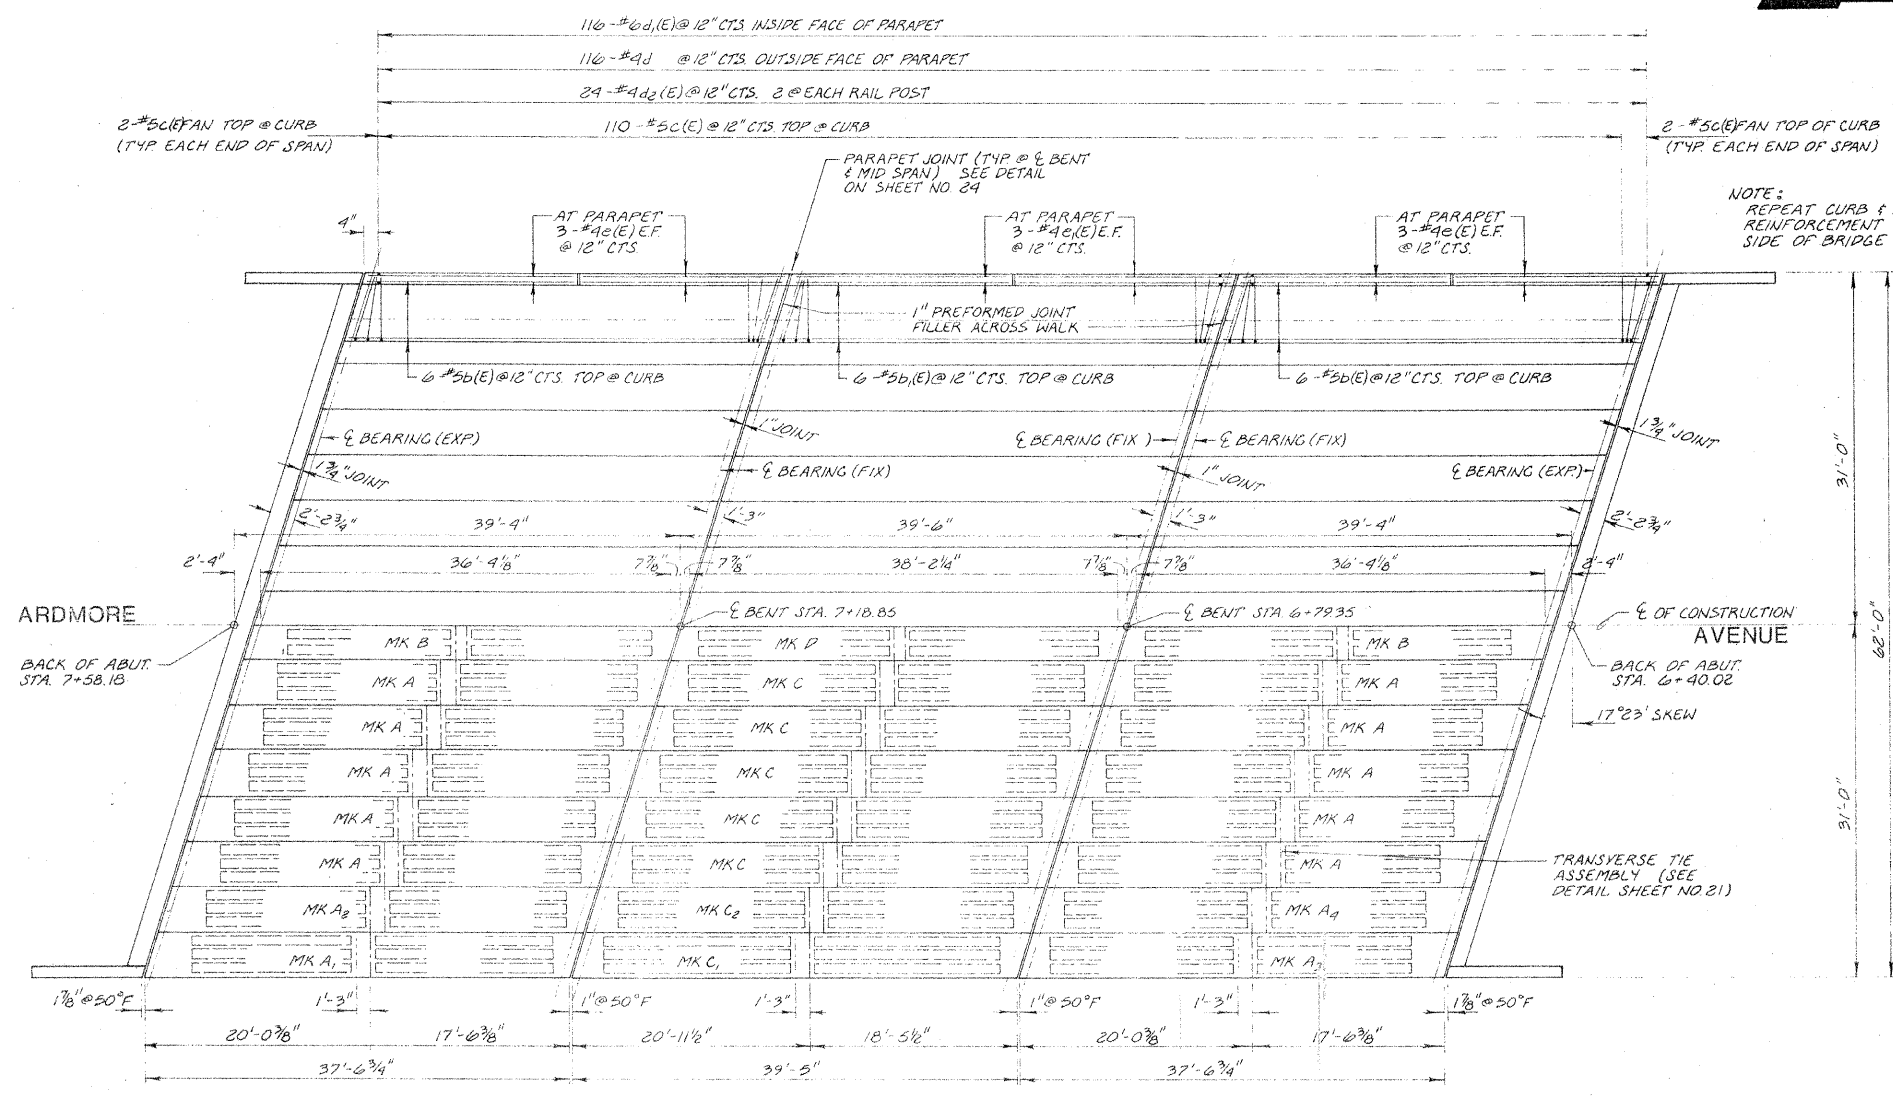 116-#6d1(E)@12"CTS. INSIDE FACE OF PARAPET
116-#4d @12"CTS. OUTSIDE FACE OF PARAPET
24-#4d2(E)@12"CTS. 2 @ EACH RAIL POST
110-#5c(E)@12"CTS. TOP @ CURB
2-#5c(E)FAN TOP @ CURB
(TYP. EACH END OF SPAN)
2-#5c(E)FAN TOP OF CURB
(TYP. EACH END OF SPAN)
PARAPET JOINT (TYP @ ℄ BENT
& MID SPAN) SEE DETAIL
ON SHEET NO. 24
NOTE:
REPEAT CURB &
REINFORCEMENT
SIDE OF BRIDGE
4"
AT PARAPET
3-#4e(E) E.F.
@12"CTS.
AT PARAPET
3-#4e1(E) E.F.
@12"CTS.
AT PARAPET
3-#4e(E) E.F.
@12"CTS.
1" PREFORMED JOINT
FILLER ACROSS WALK
6-#5b(E)@12"CTS. TOP @ CURB
6-#5b1(E)@12"CTS. TOP @ CURB
6-#5b(E)@12"CTS. TOP @ CURB
℄ BEARING (EXP)
1" JOINT
℄ BEARING (FIX)
℄ BEARING (FIX)
1 3/4" JOINT
1 3/4" JOINT
℄ BEARING (FIX)
1" JOINT
℄ BEARING (EXP.)
31'-0"
2'-2 3/4"
39'-4"
1'-3"
39'-6"
1'-3"
39'-4"
2'-2 3/4"
2'-4"
36'-4 1/8"
7 7/8"
7 7/8"
38'-2 1/4"
7 7/8"
7 7/8"
36'-4 1/8"
2'-4"
ARDMORE
℄ BENT STA. 7+18.85
℄ BENT STA. 6+79.35
℄ OF CONSTRUCTION
AVENUE
62'-0"
BACK OF ABUT.
STA. 7+58.18
MK B
MK D
MK B
BACK OF ABUT.
STA. 6+40.02
MK A
MK C
MK A
17°23' SKEW
MK A
MK C
MK A
MK A
MK C
MK A
31'-0"
MK A
MK C
MK A
MK A
MK C
MK A
TRANSVERSE TIE
ASSEMBLY (SEE
DETAIL SHEET NO. 21)
MK A2
MK C2
MK A4
MK A1
MK C1
MK A3
1 7/8"@50°F
1'-3"
1"@50°F
1'-3"
1"@50°F
1'-3"
1 7/8"@50°F
20'-0 3/8"
17'-6 3/8"
20'-11 1/2"
18'-5 1/2"
20'-0 3/8"
17'-6 3/8"
37'-6 3/4"
39'-5"
37'-6 3/4"